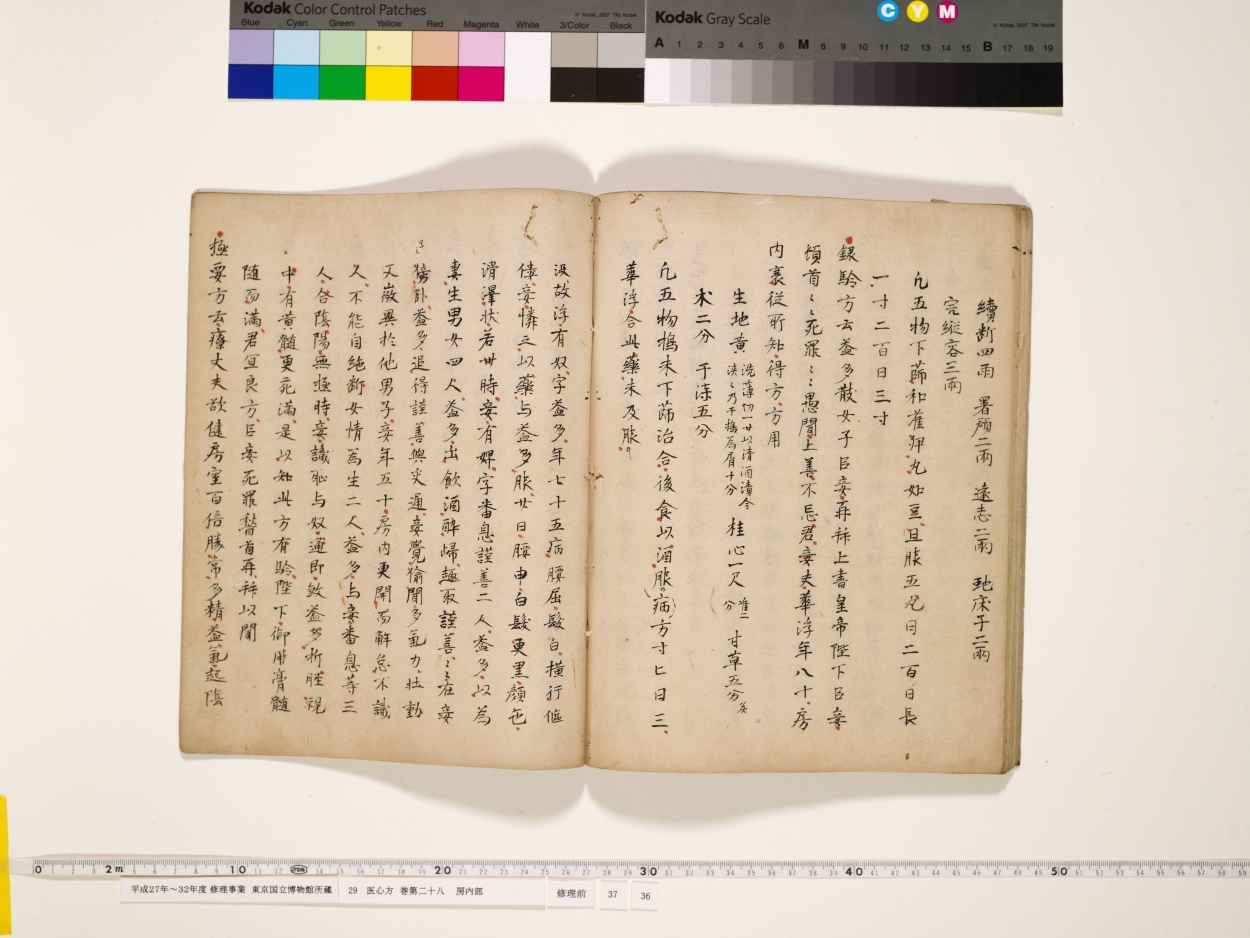 Kodak Color Control Patches
© Kodak, 2007 TM: Kodak
Blue Cyan Green Yellow Red Magenta White 3/Color Black
Kodak Gray Scale
C Y M
© Kodak, 2007 TM: Kodak
A 1 2 3 4 5 6 M 8 9 10 11 12 13 14 15 B 17 18 19
續断四兩 署預二兩 遠志二兩 虵床子二兩
完縱容三兩
凡五物下篩和雀卵丸如豆旦服五丸日二百日長
一寸二百日三寸
録驗方云益多散女子臣妾再拜上書皇帝陛下臣妾
頓首〻死罪〻〻愚聞上善不忘君妾夫華浮年八十房
内衰從所知得方方用
生地黄 洗薄切一廾以清酒漬令
浹〻乃干搗為屑十分 桂心一尺 准二
分 甘草五分 炙
朮二分 干漆五分
凡五物搗末下篩治合後食以酒服病方寸匕日三
華浮合此藥未及服
没故浮有奴字益多年七十五病腰屈髮白横行傴
僂妾憐之以藥与益多服廿日腰申白髮更黒顔色
滑澤状若卅時妾有婢字番息謹善二人益多以為
妻生男女四人益多出飲酒酔歸趣取謹善〻〻在妾
傍卧益多追得謹善與交通妾覺偷聞多氣力壮動
又微異於他男子妾年五十房内更開而解怠不識
人不能自絶断女情為生二人益多与妾番息等三
人合陰陽無極時妾識恥与奴通即煞益多折脛視
中有黄髓更充滿是以知此方有驗陛下御用膏髓
随而滿君宜良方臣妾死罪稽首再拜以聞
極要方云療丈夫欲健房室百倍勝常多精益氣起陰
平成27年～32年度 修理事業 東京国立博物館所蔵 29 医心方 巻第二十八 房内部 修理前 37 36